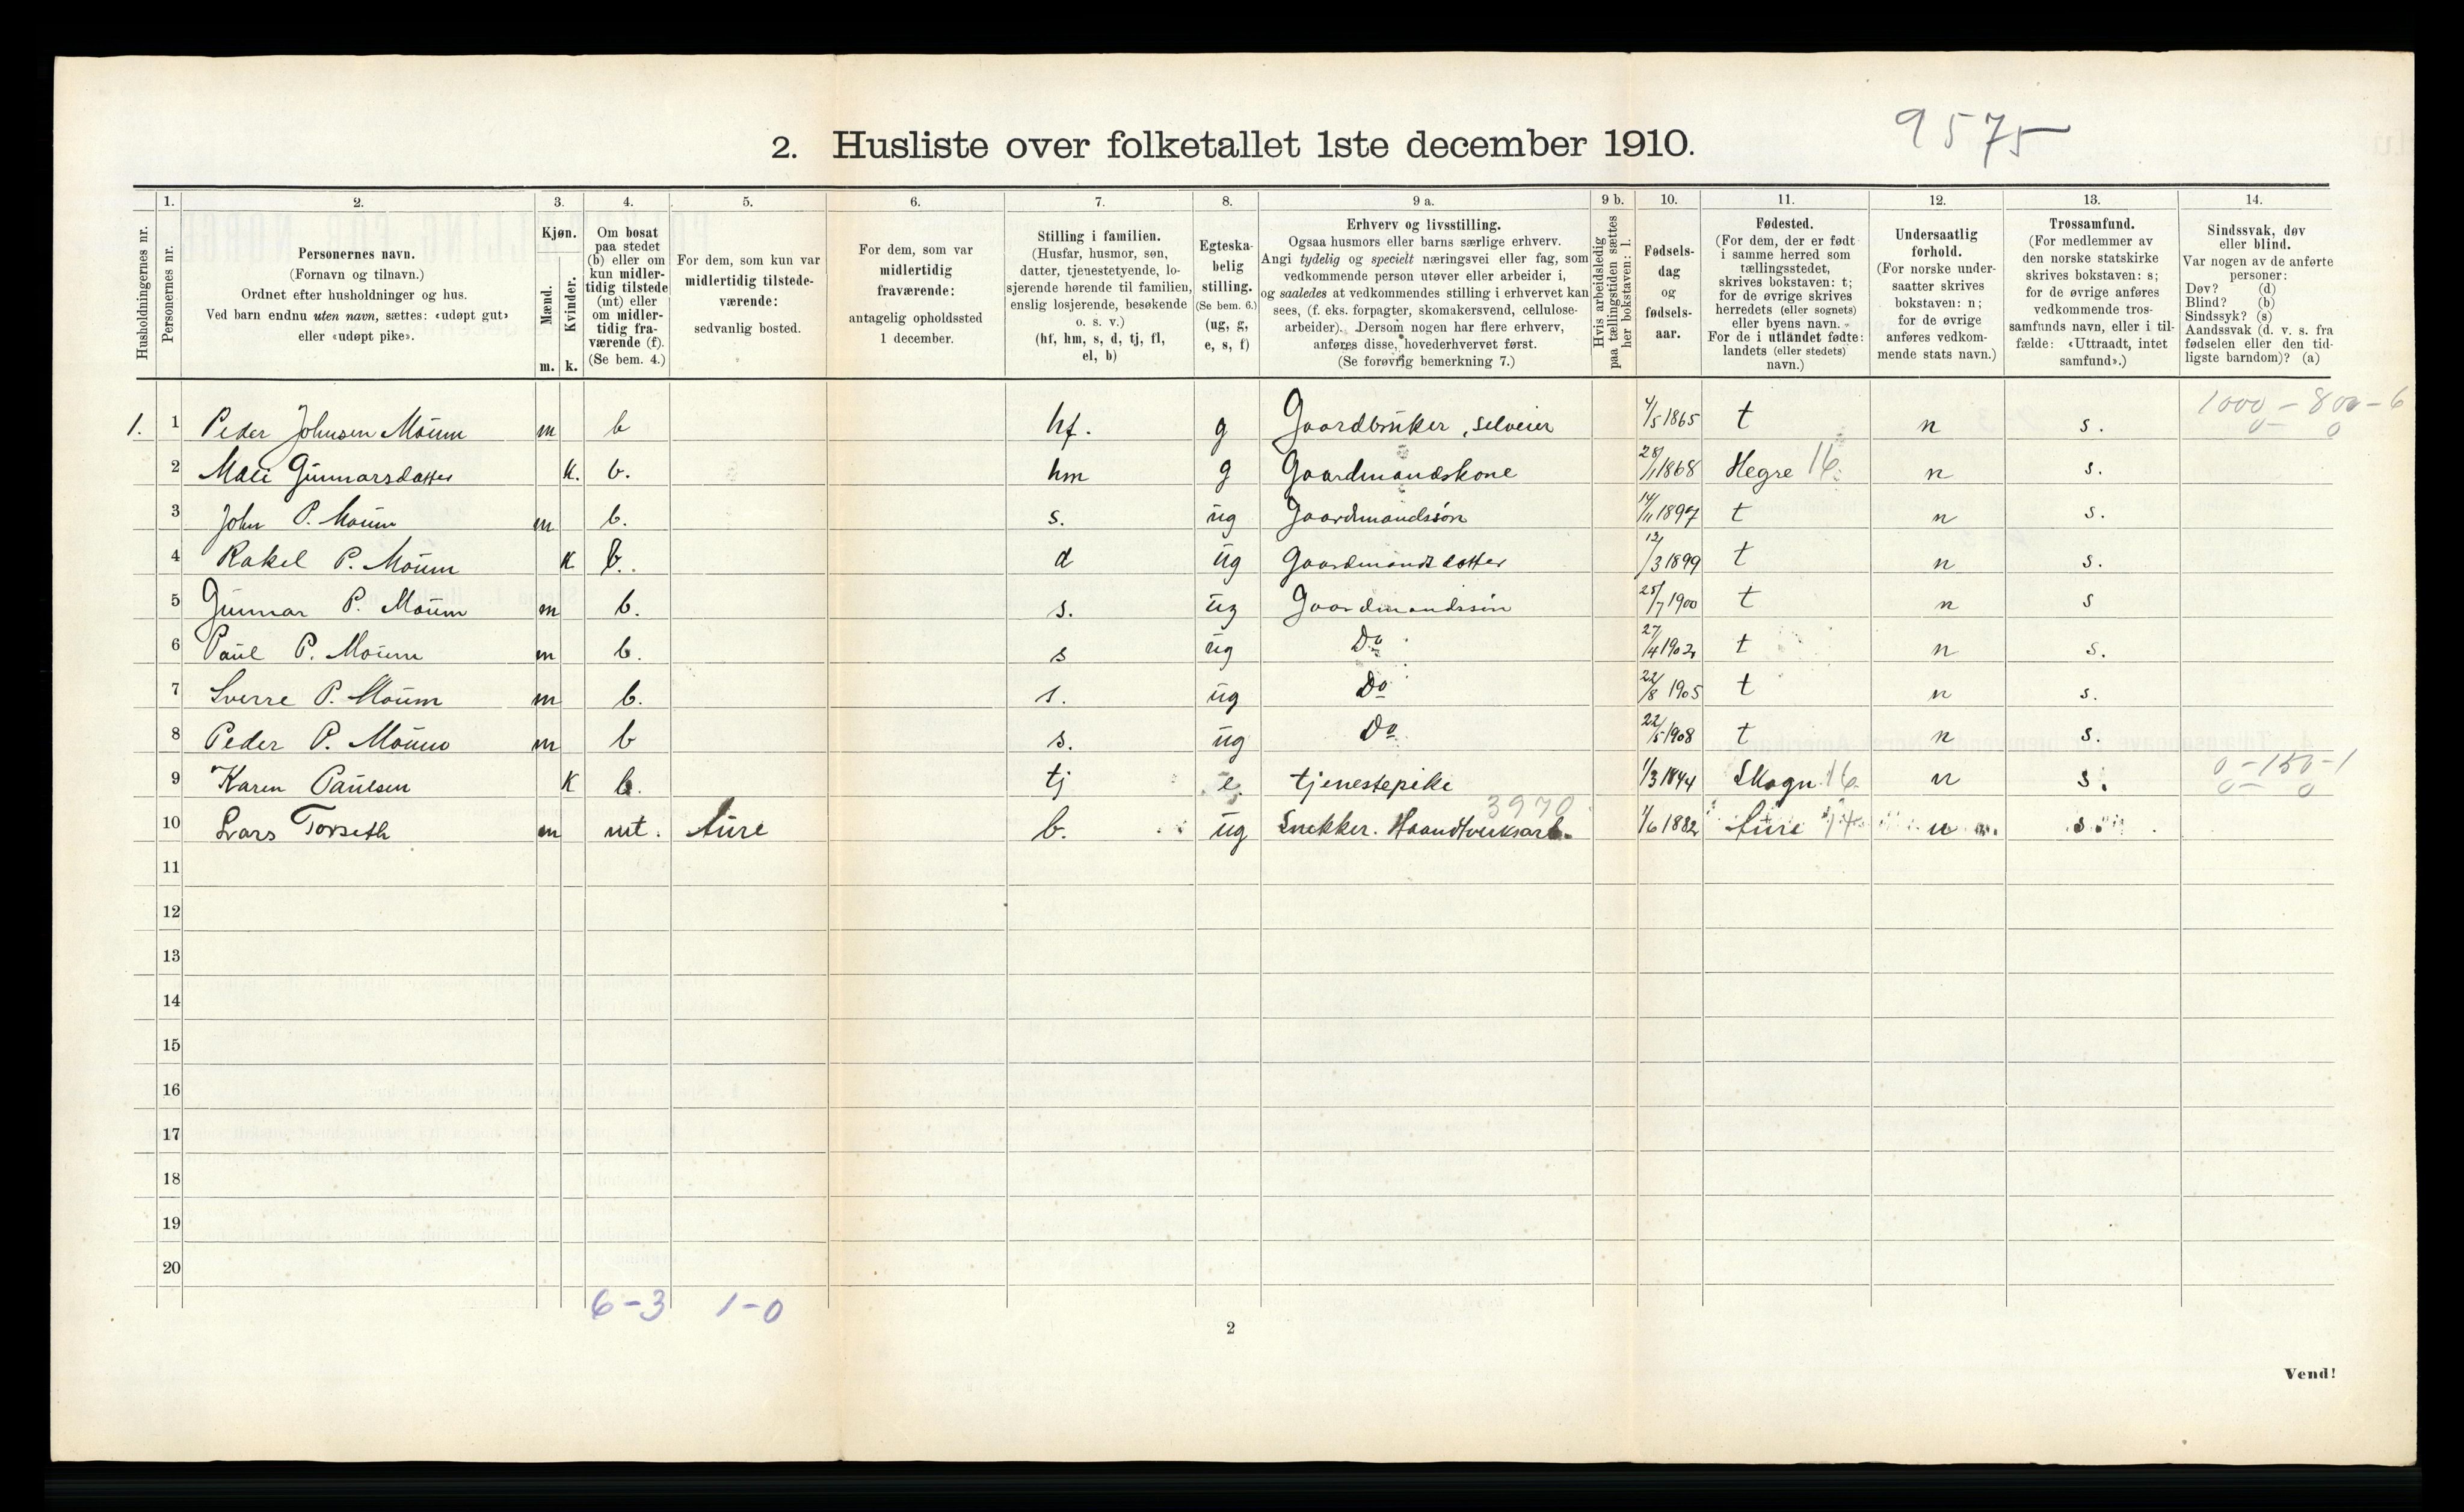 9575
2. Husliste over folketallet 1ste december 1910.
Husholdningernes nr.
1. Personernes nr.
2. Personernes navn.
(Fornavn og tilnavn.)
Ordnet efter husholdninger og hus.
Ved barn endnu uten navn, sættes: «udøpt gut»
eller «udøpt pike».
3. Kjøn.
Mænd. m.
Kvinder. k.
4. Om bosat
paa stedet
(b) eller om
kun midler-
tidig tilstede
(mt) eller
om midler-
tidig fra-
værende (f).
(Se bem. 4.)
5. For dem, som kun var
midlertidig tilstede-
værende:
sedvanlig bosted.
6. For dem, som var
midlertidig
fraværende:
antagelig opholdssted
1 december.
7. Stilling i familien.
(Husfar, husmor, søn,
datter, tjenestetyende, lo-
sjerende hørende til familien,
enslig losjerende, besøkende
o. s. v.)
(hf, hm, s, d, tj, fl,
el, b)
8. Egteska-
belig
stilling.
(Se bem. 6.)
(ug, g,
e, s, f)
9 a. Erhverv og livsstilling.
Ogsaa husmors eller barns særlige erhverv.
Angi tydelig og specielt næringsvei eller fag, som
vedkommende person utøver eller arbeider i,
og saaledes at vedkommendes stilling i erhvervet kan
sees, (f. eks. forpagter, skomakersvend, cellulose-
arbeider). Dersom nogen har flere erhverv,
anføres disse, hovederhvervet først.
(Se forøvrig bemerkning 7.)
9 b. Hvis arbeidsledig
paa tællingstiden sættes
her bokstaven: l.
10. Fødsels-
dag
og
fødsels-
aar.
11. Fødested.
(For dem, der er født
i samme herred som
tællingsstedet,
skrives bokstaven: t;
for de øvrige skrives
herredets (eller sognets)
eller byens navn.
For de i utlandet fødte:
landets (eller stedets)
navn.)
12. Undersaatlig
forhold.
(For norske under-
saatter skrives
bokstaven: n;
for de øvrige
anføres vedkom-
mende stats navn.)
13. Trossamfund.
(For medlemmer av
den norske statskirke
skrives bokstaven: s;
for de øvrige anføres
vedkommende tros-
samfunds navn, eller i til-
fælde: «Uttraadt, intet
samfund».)
14. Sindssvak, døv
eller blind.
Var nogen av de anførte
personer:
Døv? (d)
Blind? (b)
Sindssyk? (s)
Aandssvak (d. v. s. fra
fødselen eller den tid-
ligste barndom)? (a)
1000 - 800 - 6
0 - 0
1. 1 Peder Johnsen Moum m b hf. g Gaardbruker, selveier 4/5 1865 t n s.
2 Mali Gunnarsdatter K. b. hm g Gaardmandskone 28/1 1868 Hegre 16 n s.
3 John P. Moum m b. s. ug Gaardmandssøn 14/11 1897 t n s.
4 Rakel P. Moum K b. d ug Gaardmandsdatter 12/3 1899 t n s.
5 Gunnar P. Moum m b. s. ug Gaardmandssøn 25/7 1900 t n s
6 Paul P. Moum m b. s ug Do 27/4 1902 t n s.
7 Sverre P. Moum m b. s. ug Do 22/8 1905 t n s.
8 Peder P. Moum m b s. ug Do 22/5 1908 t n s.
0 - 150 - 1
0 - 0
9 Karen Paulsen K b. tj e. tjenestepike 1/3 1844 Skogn 16 n s.
3970
10 Lars Torseth m mt. Aure b. ug Snekker. Haandtverksarb. 1/6 1882 Aure n s.
11
12
13
14
15
16
17
18
19
20
6-3 1-0
2
Vend!